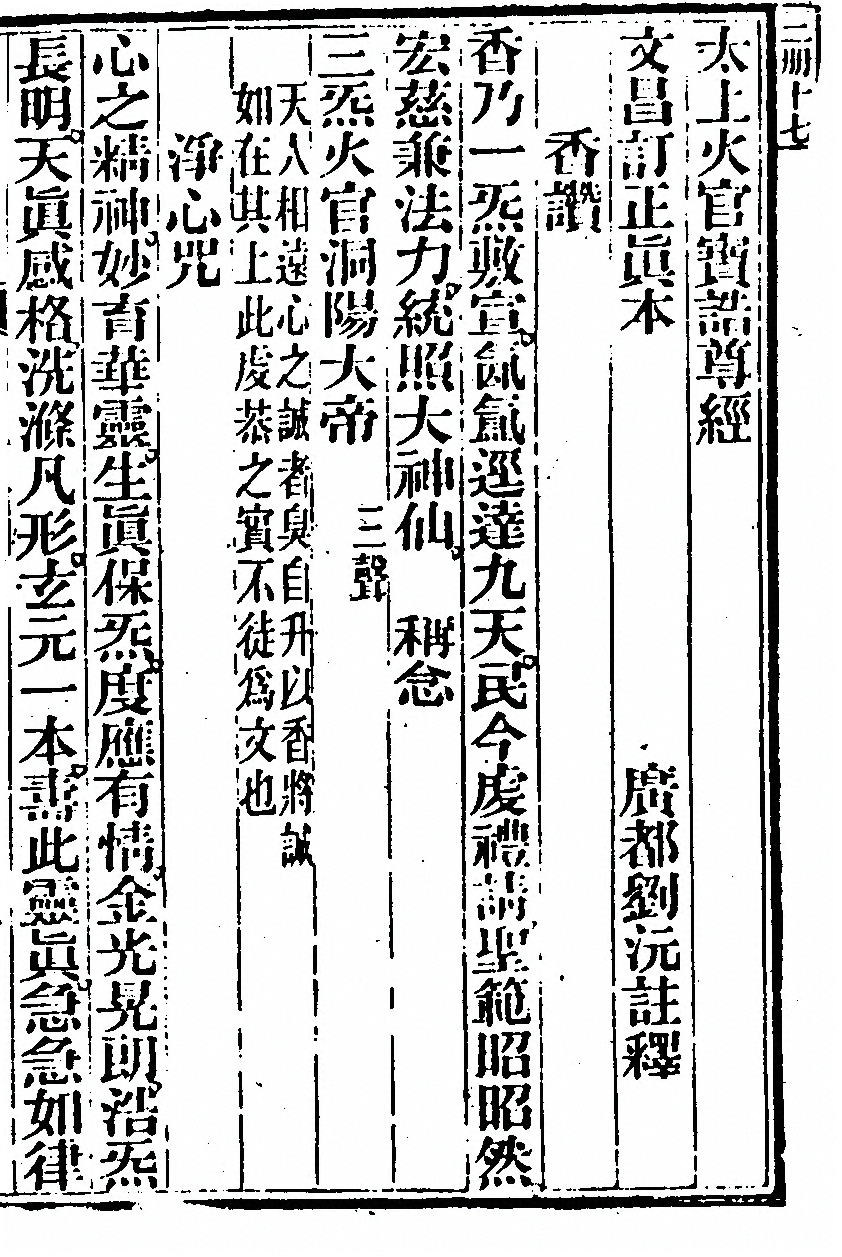 二冊十七
太上火官寶誥尊經
文昌訂正眞本　廣都劉沅註釋
香讚
香乃一炁敷宣。氤氳逕達九天。民今虔禮請聖範昭昭然
宏慈兼法力。統照大神仙。　稱念
三炁火官洞陽大帝　三聲
天人相遠心之誠者臭自升以香將誠
如在其上此虔恭之實不徒爲文也
淨心咒
心之精神。妙育華靈。生眞保炁。度應有情。金光晃朗。浩炁
長明。天眞感格。洗滌凡形。玄元一本。書此靈眞。急急如律